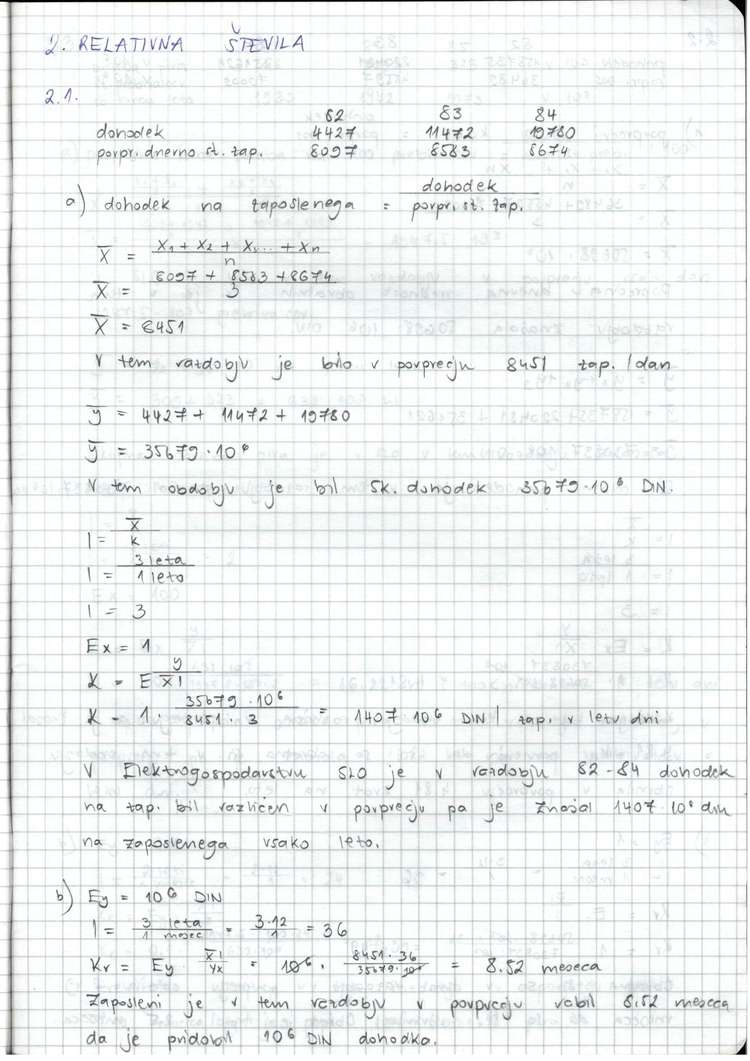 2. RELATIVNA ŠTEVILA
2.1.
82 83 84
dohodek 4427 11472 19780
povpr. dnevno st. zap. 8097 8583 8674
a) dohodek na zaposlenega = dohodek / povpr. st. zap.
X̅ = X₁ + X₂ + X₃ ... + Xn / n
X̅ = 8097 + 8583 + 8674 / 3
X̅ = 8451
V tem razdobju je bilo v povprecju 8451 zap. / dan
y̅ = 4427 + 11472 + 19780
y̅ = 35679 · 10⁶
V tem obdobju je bil sk. dohodek 35679 · 10⁶ DIN.
l = X̅ / k
l = 3 leta / 1 leto
l = 3
Ex = 1
K = E y / X̅ l
K = 1 · 35679 · 10⁶ / 8451 · 3 = 1407 10⁶ DIN / zap. v letu dni
V Elektrogospodarstvu SLO je v razdobju 82-84 dohodek
na zap. bil razlicen v povprecju pa je znasal 1407 10⁶ din
na zaposlenega vsako leto.
b) Ey = 10⁶ DIN
l = 3 leta / 1 mesec = 3·12 / 1 = 36
Kr = Ey · X̅ l / Yx = 10⁶ · 8451 · 36 / 35679 · 10⁶ = 8.52 meseca
Zaposleni je v tem razdobju v povprecju rabil 8.52 meseca
da je pridobil 10⁶ DIN dohodka.